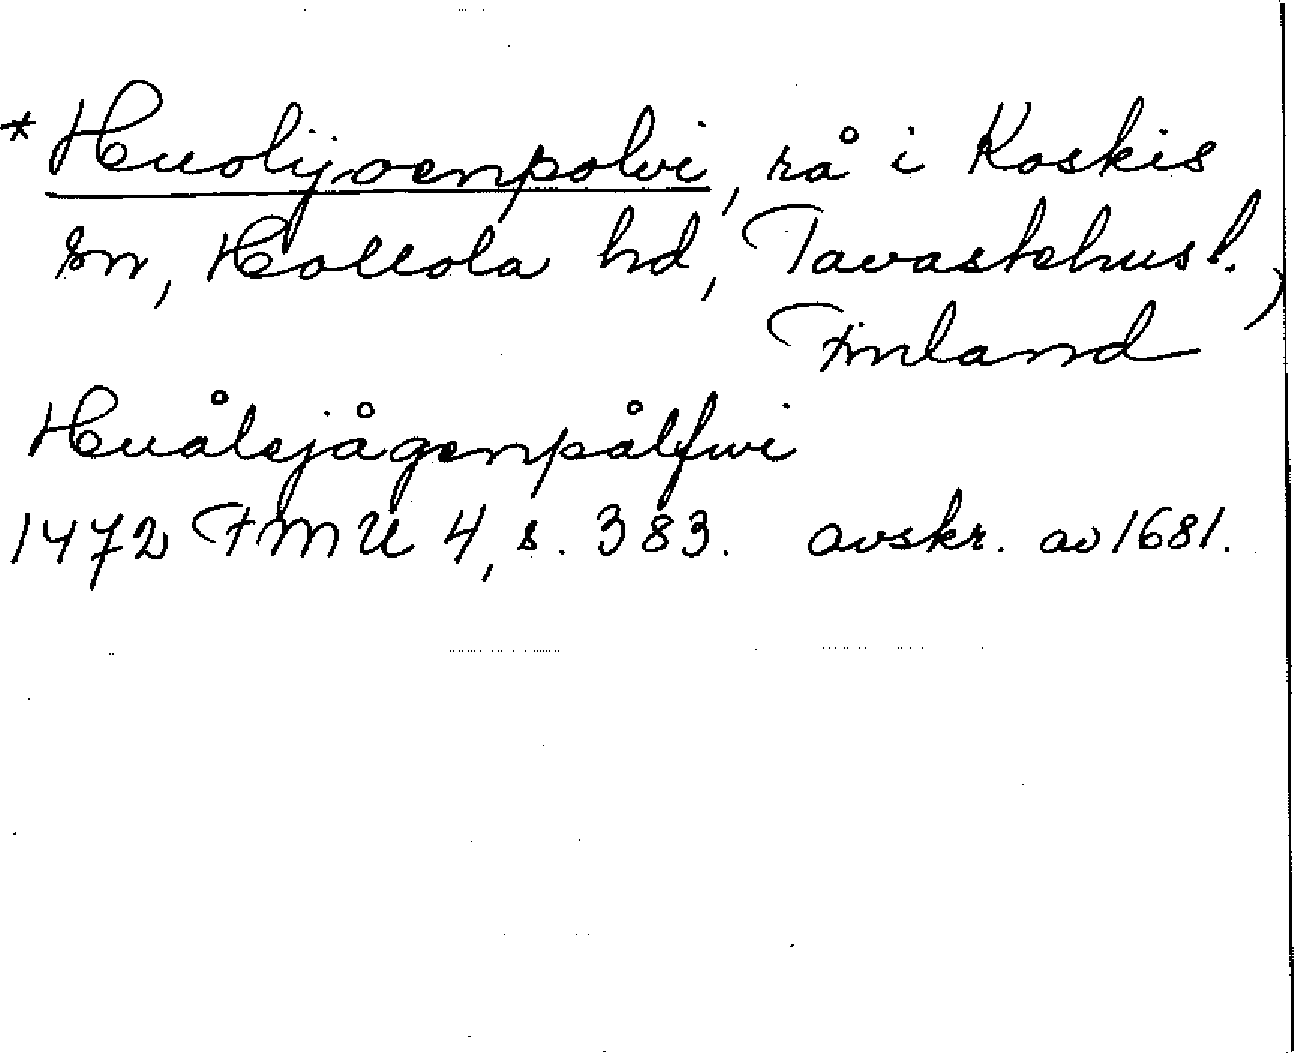 * Huolijoenpolvi, rå i Koskis
sn, Hollola hd, Tavastehus l.,
Finland
Huålejågenpålfwi
1472 FMU 4, s. 383. avskr. av 1681.